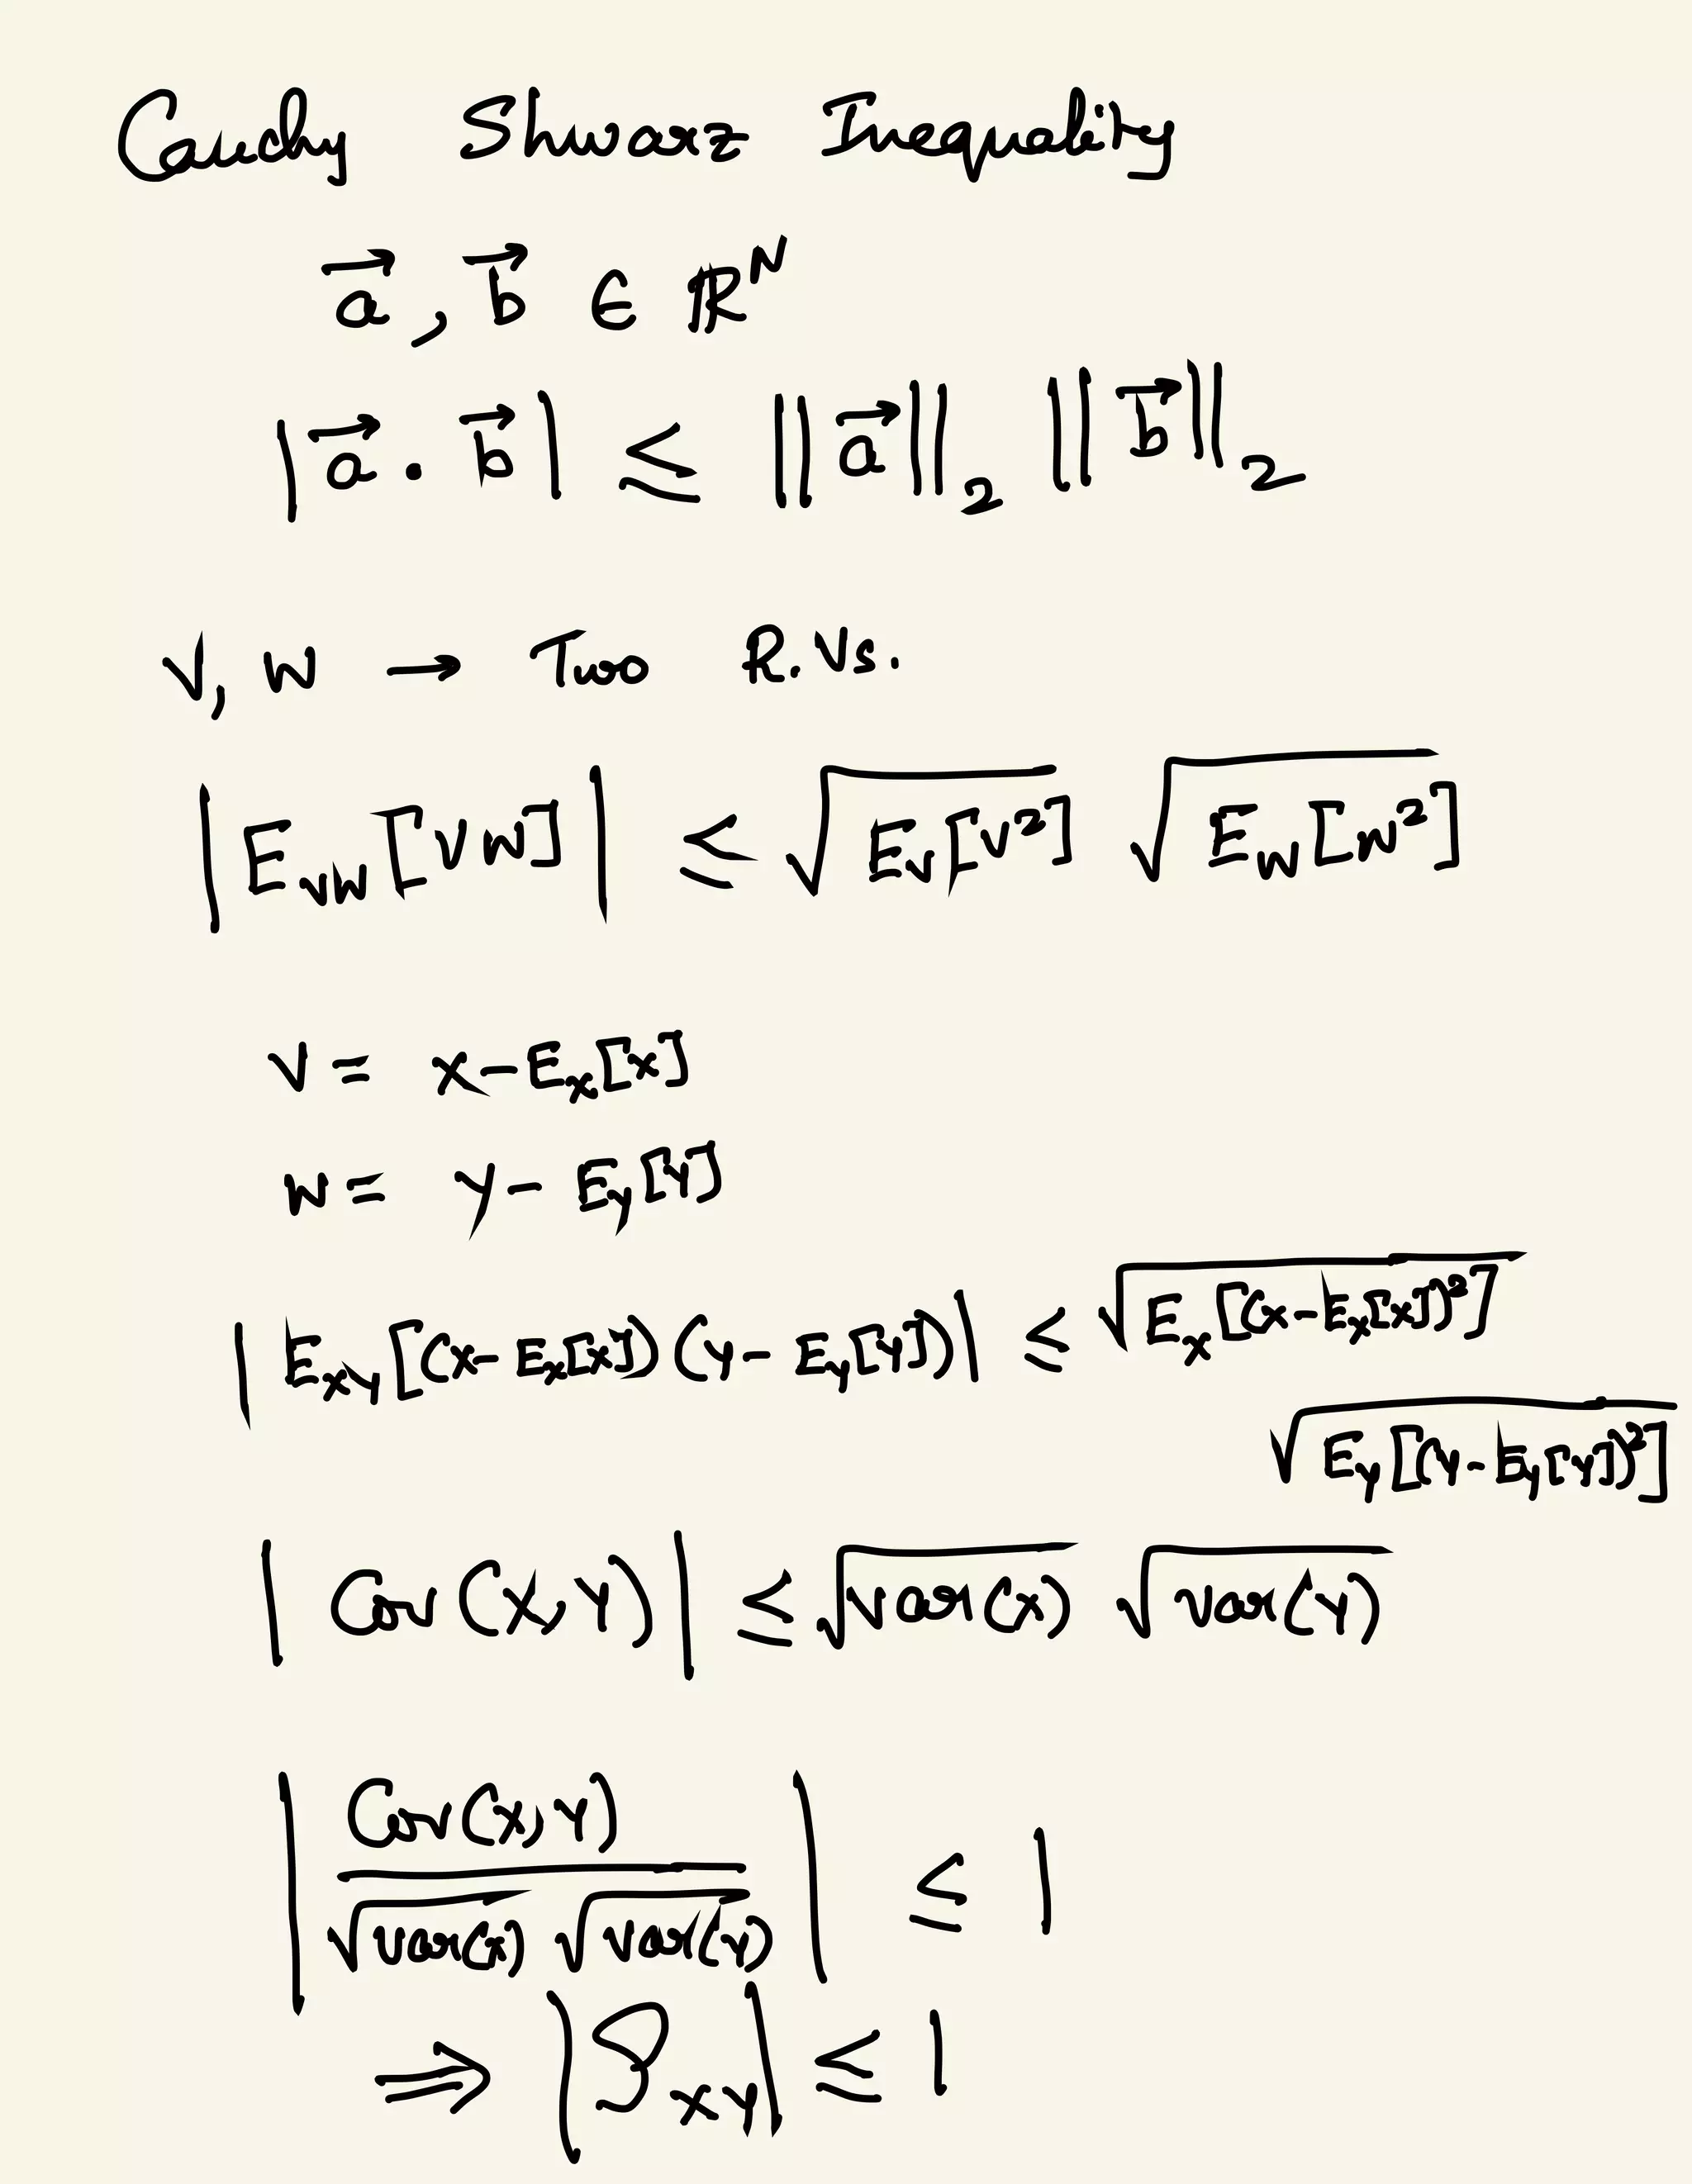 Cauchy Shwarz Inequality
a⃗, b⃗ ∈ ℝᴺ
|a⃗ · b⃗| ≤ ||a⃗||₂ ||b⃗||₂
V, W → Two R.Vs.
|E_VW[VW]| ≤ √(E_V[V²]) √(E_W[W²])
V = X - E_X[X]
W = Y - E_Y[Y]
|E_XY[(X - E_X[X])(Y - E_Y[Y])]| ≤ √(E_X[(X - E_X[X])²])
√(E_Y[(Y - E_Y[Y])²])
|Cov(X,Y)| ≤ √var(X) √var(Y)
|Cov(X,Y) / (√var(X) √var(Y))| ≤ 1
⇒ |ρ_XY| ≤ 1